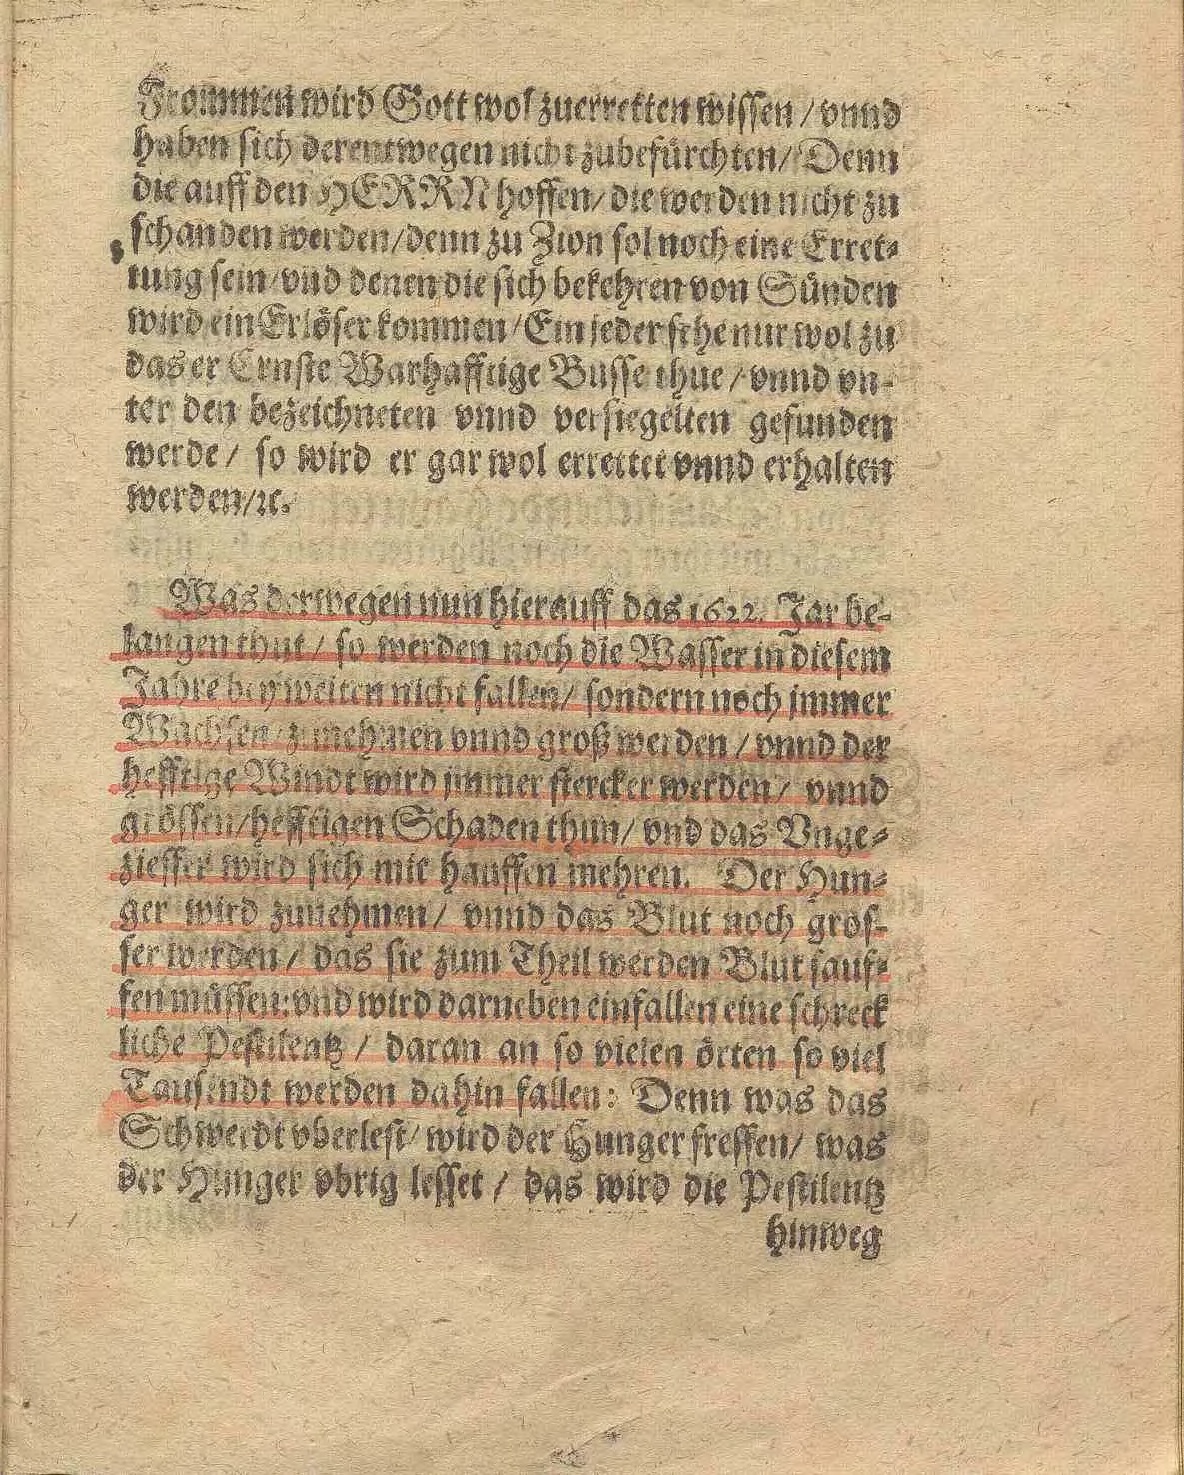 Frommen wird Gott wol zuerretten wissen / vnnd
haben sich derentwegen nicht zubefürchten / Denn
die auff den HERRN hoffen / die werden nicht zu
schanden werden / denn zu Zion sol noch eine Erret-
tung sein / vnd denen die sich bekehren von Sünden
wird ein Erlöser kommen / Ein jeder sehe nur wol zu
das er Ernste Warhafftige Busse thue / vnnd vn-
ter den bezeichneten vnnd versiegelten gefunden
werde / so wird er gar wol errettet vnnd erhalten
werden / ꝛc.
Was derwegen nun hierauff das 1622. Jar be-
langen thut / so werden noch die Wasser in diesem
Jahre bey weiten nicht fallen / sondern noch jmmer
Wachsen / zunehmen vnnd groß werden / vnnd der
hefftige Windt wird jmmer stercker werden / vnnd
grössen / hefftigen Schaden thun / vnd das Vnge-
zieffer wird sich mit hauffen mehren. Der Hun-
ger wird zunehmen / vnnd das Blut noch gros-
ser werden / das sie zum Theil werden Blut sauf-
fen müssen: vnd wird darneben einfallen eine schreck
liche Pestilentz / daran an so vielen örten so viel
Tausendt werden dahin fallen: Denn was das
Schwerdt vberlest / wird der Hunger fressen / was
der Hunger vbrig lesset / das wird die Pestilentz
hinweg